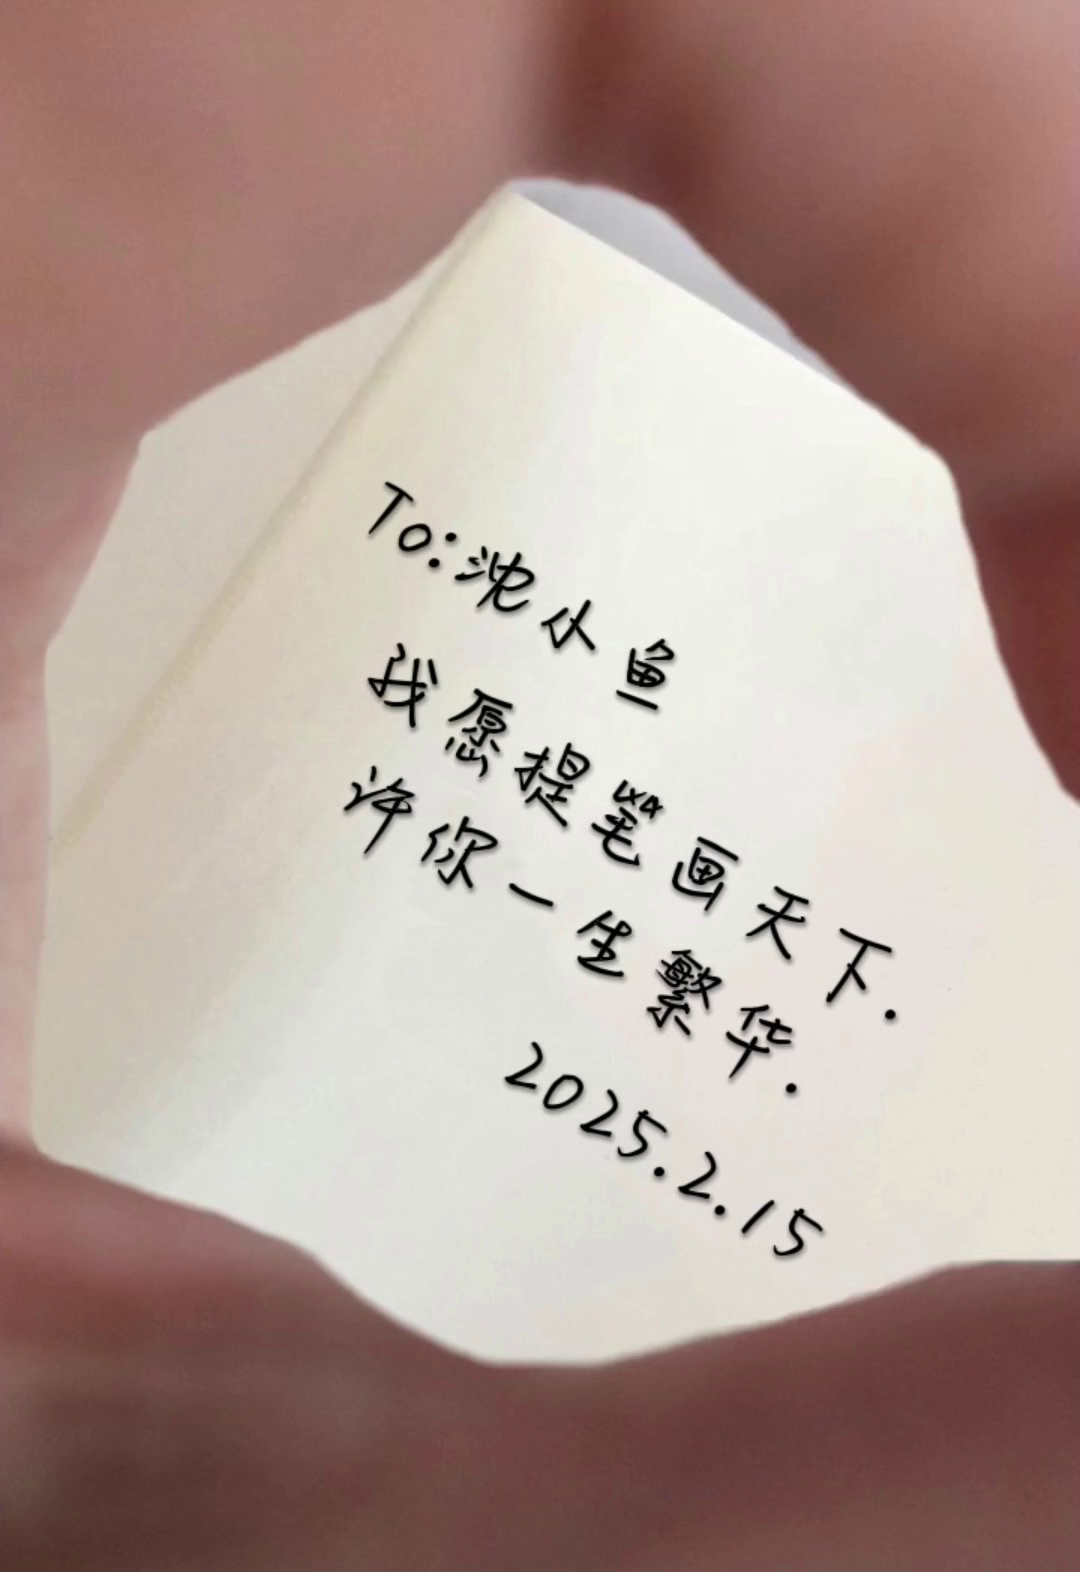 To:沈小鱼
我愿提笔画天下.
许你一生繁华.
2025.2.15